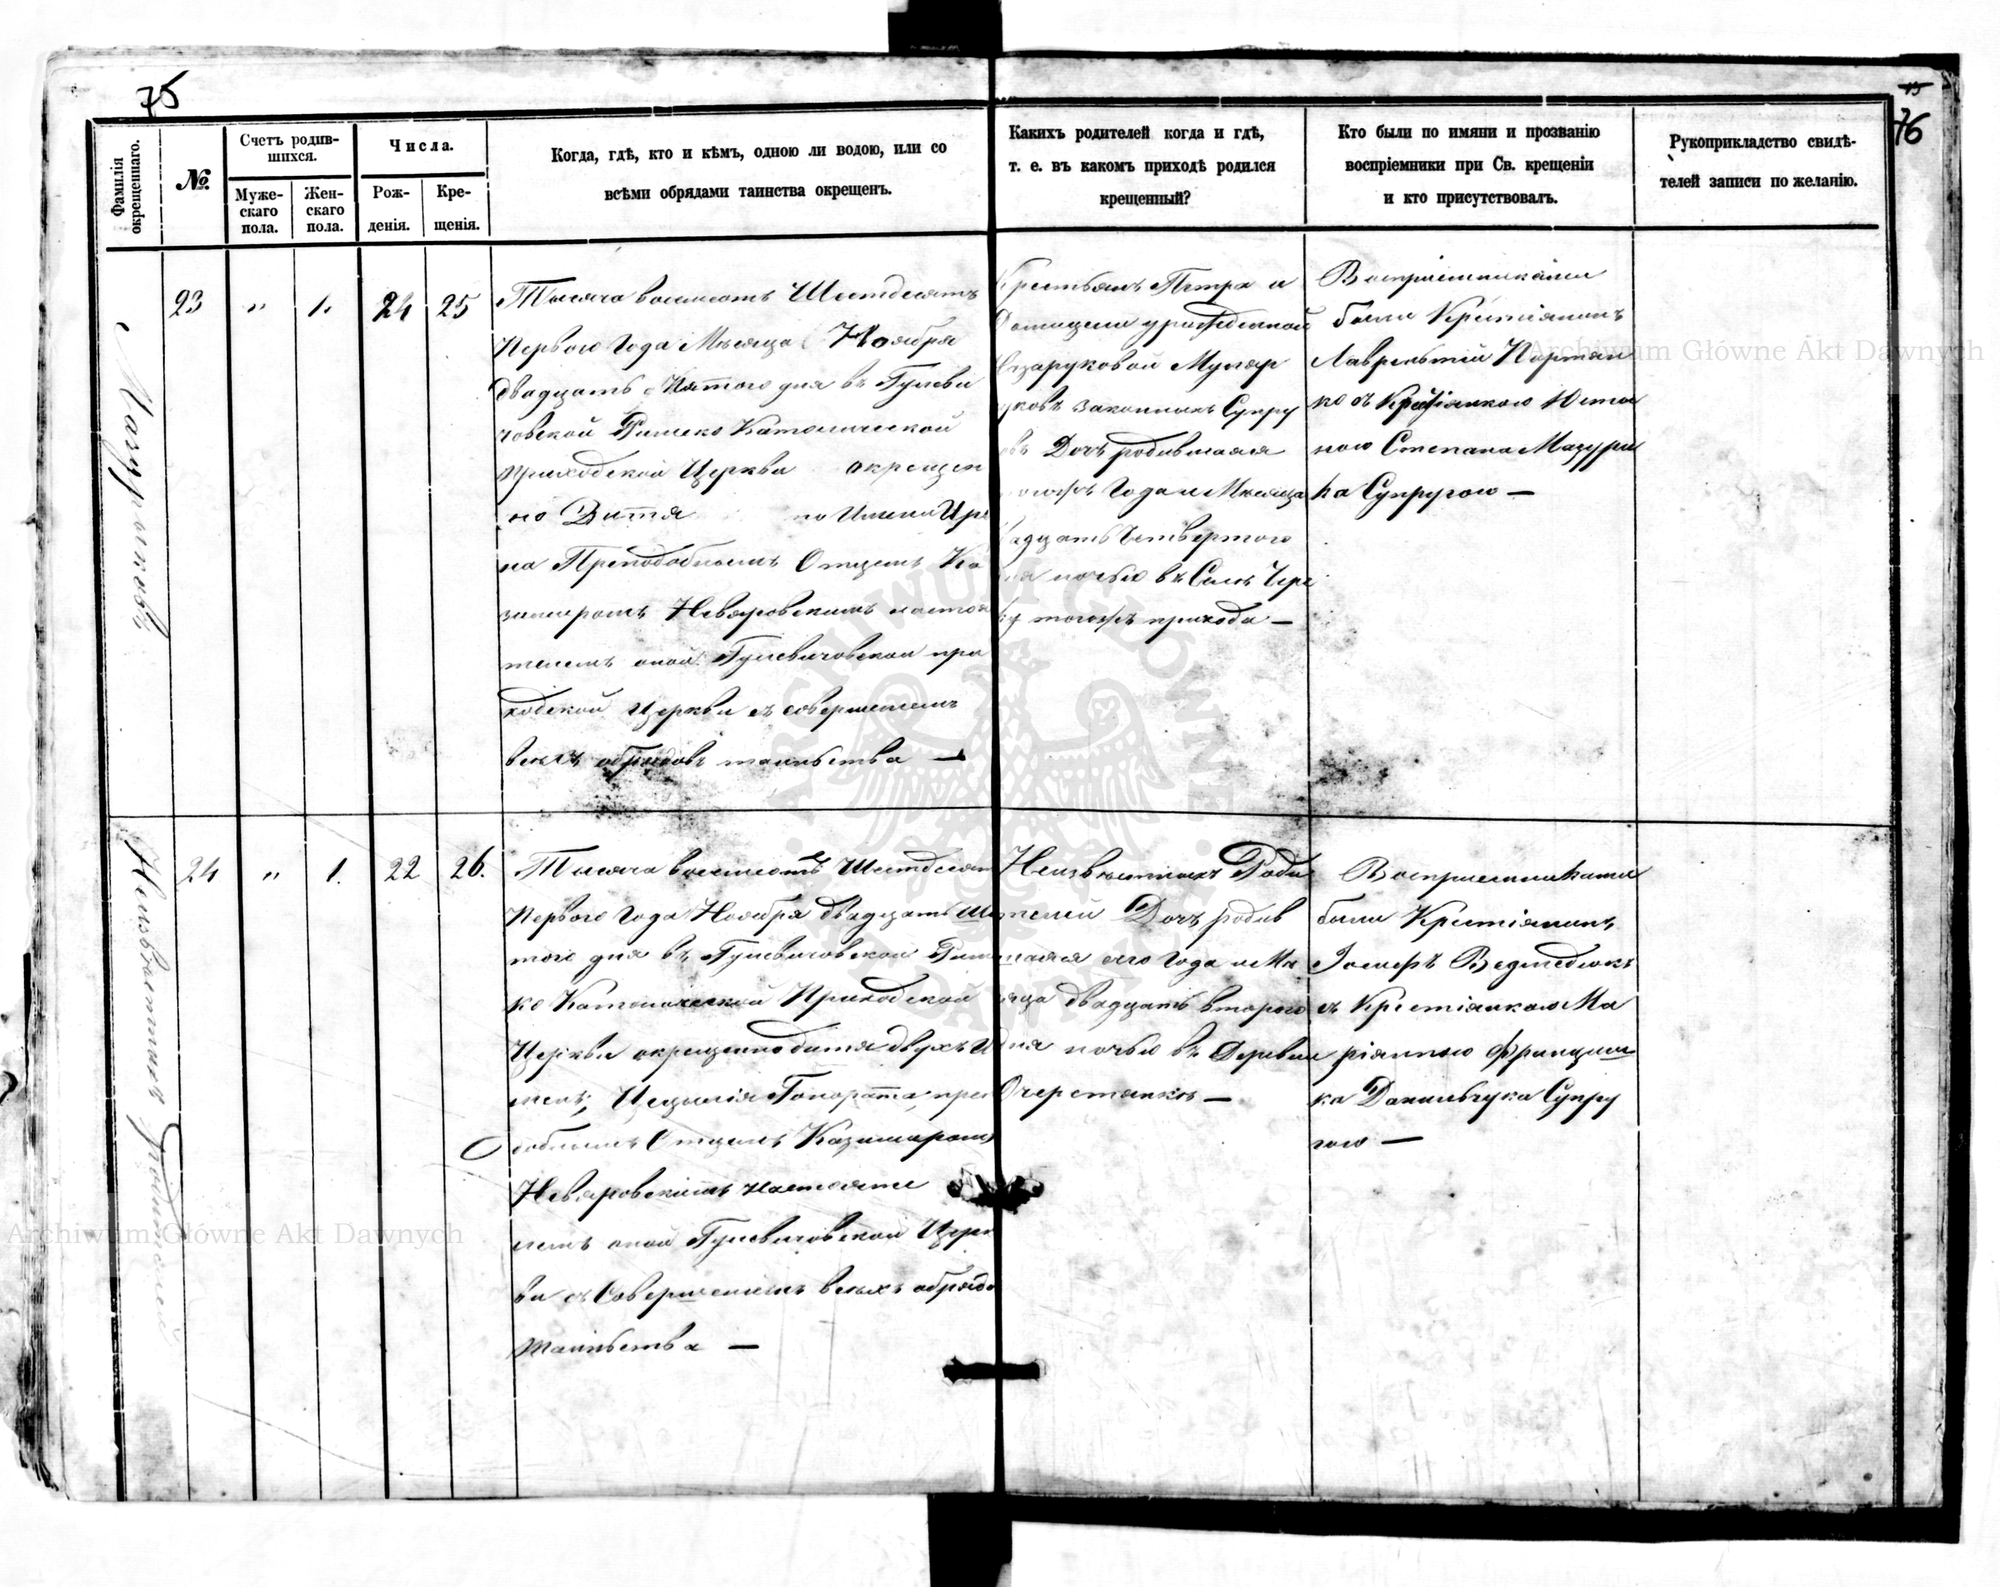 75
15
76
Фамилія окрещеннаго.
№.
Счетъ родив-
шихся.
Муже-
скаго
пола.
Жен-
скаго
пола.
Числа.
Рож-
денія.
Кре-
щенія.
Когда, гдѣ, кто и кѣмъ, одною ли водою, или со
всѣми обрядами таинства окрещенъ.
Какихъ родителей когда и гдѣ,
т. е. въ какомъ приходѣ родился
крещенный?
Кто были по имяни и прозванію
воспріемники при Св. крещеніи
и кто присутствовалъ.
Рукоприкладство свидѣ-
телей записи по желанію.
23
"
1.
24
25
Тысяча восемсотъ Шестдесятъ
Первого Года Мѣсяца Ноября
двадцать Пятого дня въ Гулеви
човской Римско Католической
приходской Церкви окрещен
но Дитя по Имени Ире
на Преподобнымъ Отцемъ Ка
зимиромъ Невяровскимъ настоя
телемъ оной Гулевичовской при
ходской Церкви съ совершенiемъ
всѣхъ обрядовъ таинства —
Крестьянъ Петра и
урожденной
законныхъ Супру
овъ Дочъ родившаяся
Года и Мѣсяца
адцать Четвертого
ночью въ Селѣ Чере
тогожъ прихода —
Воспріемниками
были Крестіянинъ
Лаврентій
ко съ Крестіянкою Юсти
ною Степана Мазури
ка Супругою —
24
"
1.
22
26.
Неизвѣстныхъ Родителей
Тысяча восемсотъ Шестдесят
Первого Года Ноября двадцать Ше
того дня въ Гулевичовской Рим
ко Католической Приходской
Церкви окрещенно дитя двухъ И
менъ, Цецылія Гонората, преп
добнымъ Отцемъ Казимиромъ
Невяровскимъ Настояте
лемъ оной Гулевичовской Церк
ви съ Совершенiемъ всѣхъ обрядо
таинства —
Неизвѣстныхъ Роди
телей Дочъ родив
шаяся сего Года и Мѣ
яца двадцать второго
дня ночью въ Деревни
Очеретянкѣ —
Воспріемниками
были Крестіянинъ
Іосифъ Ведмедюкъ
съ Крестіянкою Ма
ріянною Франциш
ка Данильчука Супру
гою —
Archiwum Główne Akt Dawnych
Archiwum Główne Akt Dawnych
ARCHIWUM GŁÓWNE AKT DAWNYCH